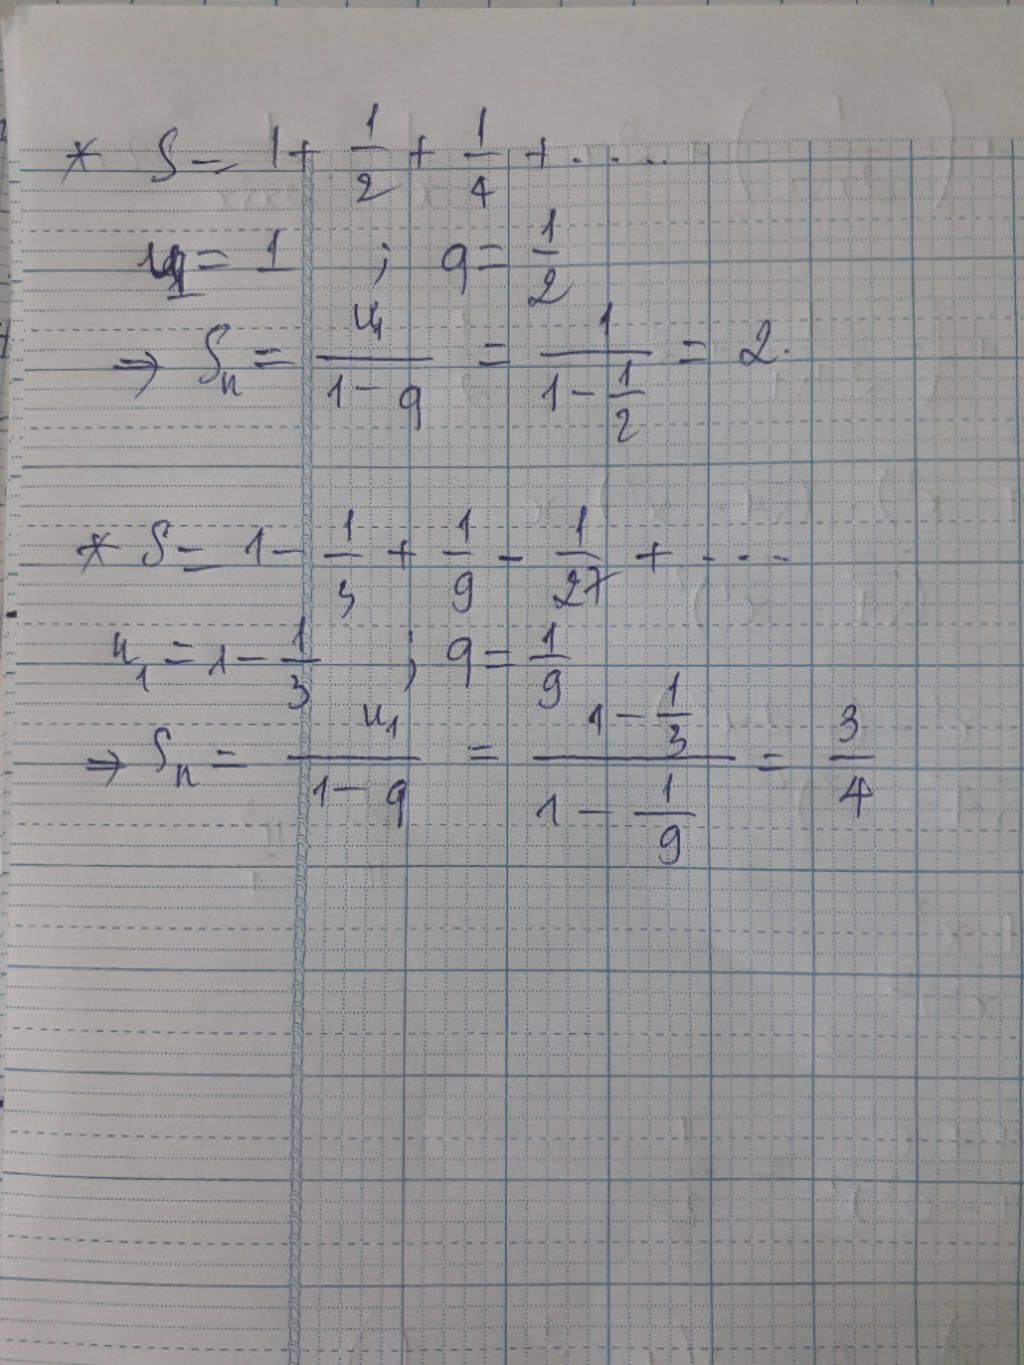 * S = 1 + 1/2 + 1/4 + .....
u₁ = 1 ; q = 1/2
⇒ Sₙ = u₁/(1 - q) = 1/(1 - 1/2) = 2.
* S = 1 - 1/3 + 1/9 - 1/27 + ....
u₁ = 1 - 1/3 ; q = 1/9
⇒ Sₙ = u₁/(1 - q) = (1 - 1/3)/(1 - 1/9) = 3/4